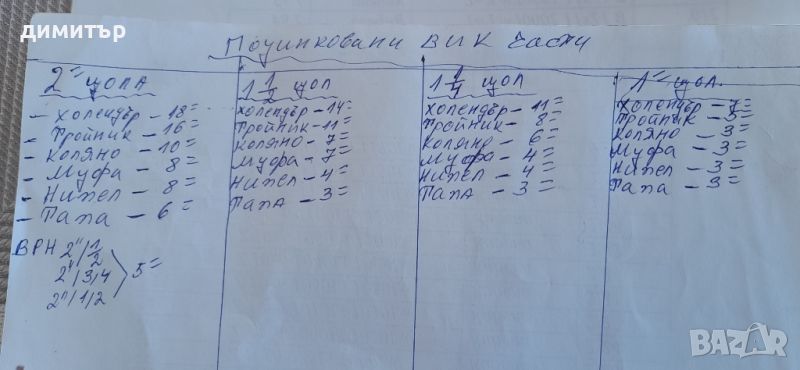 димитър
Поцинковани ВиК части
2" цола
- Холендър - 18=
- Тройник - 16=
- Коляно - 10=
- Муфа - 8=
- Нипел - 8=
- Тапа - 6=
ВРН 2"/1/2
2"/3/4
2"/1/2
5=
1 1/2 цол
Холендър - 14=
Тройник - 11=
Коляно - 7=
Муфа - 7=
Нипел - 4=
Тапа - 3=
1 1/4 цол
Холендър - 11=
Тройник - 8=
Коляно - 6=
Муфа - 4=
Нипел - 4=
Тапа - 3=
1" цол.
Холендър - 7=
Тройник - 5=
Коляно - 3=
Муфа - 3=
Нипел - 3=
Тапа - 3=
BAZAR